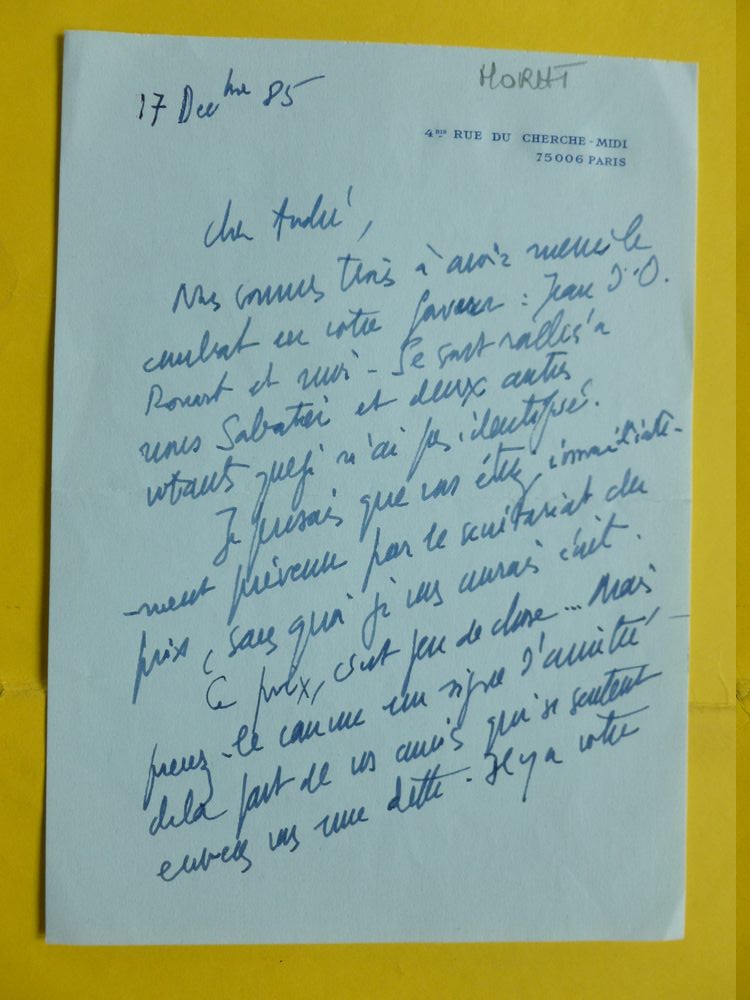 17 Décbre 85
MORAT
4BIS RUE DU CHERCHE-MIDI
75006 PARIS
cher André,
Nous sommes trois à avoir mené le
combat en votre faveur : Jean d'O.
Rouart et moi - Se sont ralliés à
nous Sabatier et deux autres
votants que je n'ai pas identifiés.
Je pensais que vous étiez immédiate-
-ment prévenu par le secrétariat du
prix, sans quoi je vous aurais écrit.
Ce prix, c'est peu de chose... Mais
prenez-le comme un signe d'amitié
de la part de vos amis qui se sentent
envers vous une dette. Il y a votre